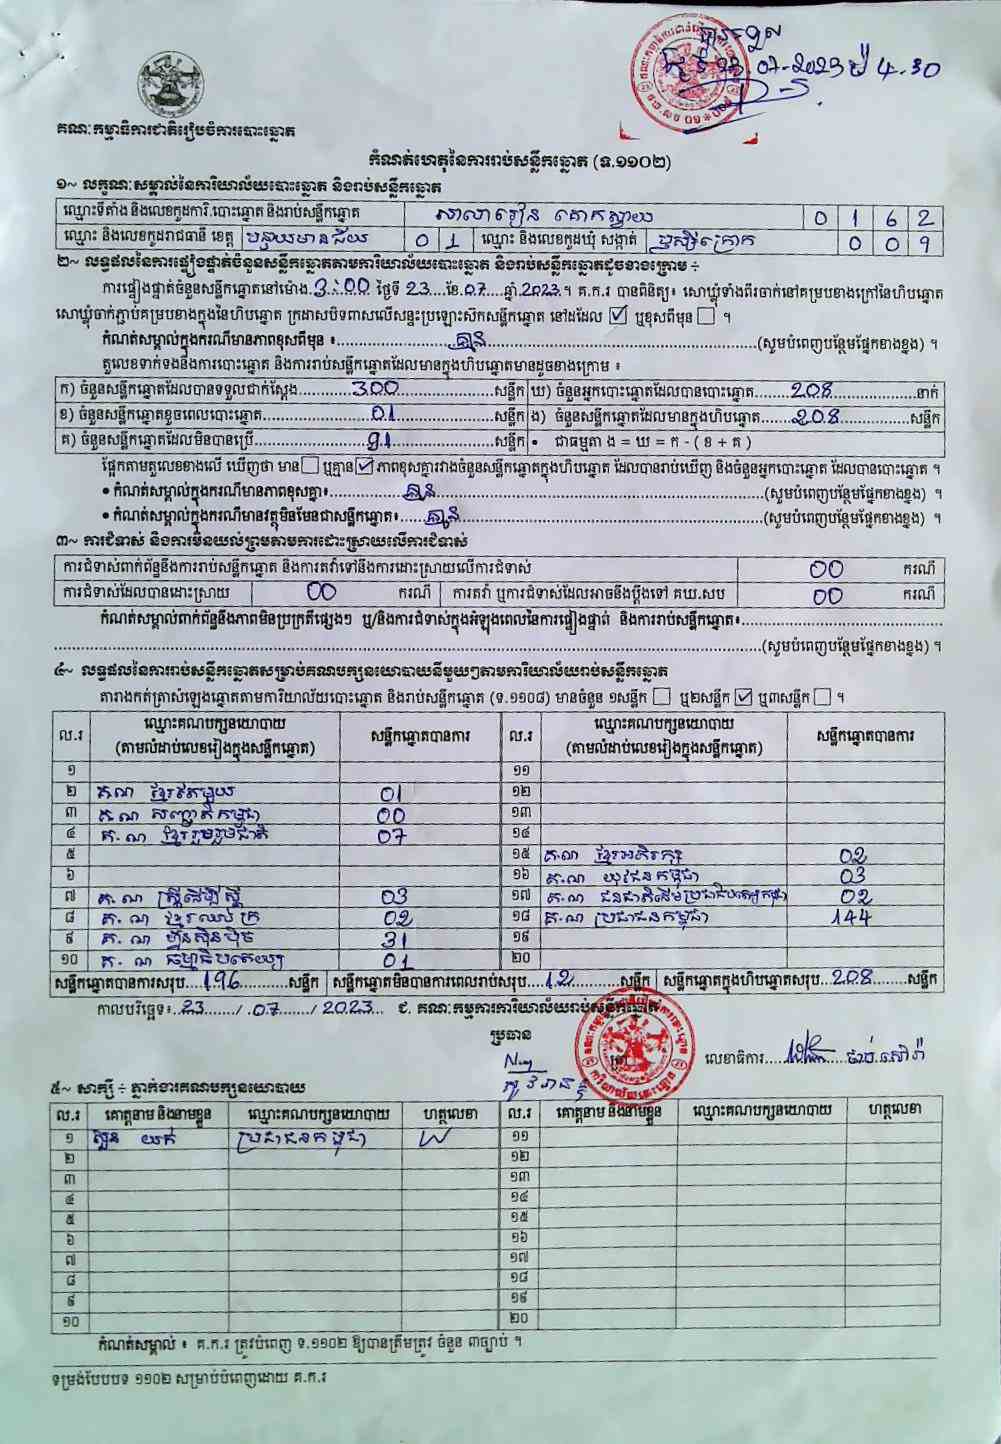 បានទទួល
ថ្ងៃទី 23.07-2023 ម៉ 4.30
គណៈកម្មាធិការជាតិរៀបចំការបោះឆ្នោត
កំណត់ហេតុនៃការរាប់សន្លឹកឆ្នោត (ទ.១១០២)
១~ លក្ខណៈសម្គាល់នៃការិយាល័យបោះឆ្នោត និងរាប់សន្លឹកឆ្នោត
ឈ្មោះទីតាំង និងលេខកូដការិ.បោះឆ្នោត និងរាប់សន្លឹកឆ្នោត សាលារៀន គោកស្វាយ 0 1 6 2
ឈ្មោះ និងលេខកូដរាជធានី ខេត្ត បន្ទាយមានជ័យ 0 1 ឈ្មោះ និងលេខកូដឃុំ សង្កាត់ ឫស្សីក្រោក 0 0 9
២~ លទ្ធផលនៃការផ្ទៀងផ្ទាត់ចំនួនសន្លឹកឆ្នោតតាមការិយាល័យបោះឆ្នោត និងរាប់សន្លឹកឆ្នោតដូចខាងក្រោម ÷
ការផ្ទៀងផ្ទាត់ចំនួនសន្លឹកឆ្នោតនៅម៉ោង 3:00 ថ្ងៃទី 23 ខែ 07 ឆ្នាំ 2023 ។ គ.ក.រ បានពិនិត្យ៖ សោឃ្លុំទាំងពីរចាក់នៅគម្របខាងក្រៅនៃហិបឆ្នោត
សោឃ្លុំចាក់ភ្ជាប់គម្របខាងក្នុងនៃហិបឆ្នោត ក្រដាសបិទពាសលើសន្ទះប្រឡោះសឹកសន្លឹកឆ្នោត នៅដដែល ☑ ឬខុសពីមុន ☐ ។
កំណត់សម្គាល់ក្នុងករណីមានភាពខុសពីមុន ៖ គ្មាន (សូមបំពេញបន្ថែមផ្នែកខាងខ្នង) ។
តួលេខទាក់ទងនឹងការបោះឆ្នោត និងការរាប់សន្លឹកឆ្នោតដែលមានក្នុងហិបឆ្នោតមានដូចខាងក្រោម ៖
ក) ចំនួនសន្លឹកឆ្នោតដែលបានទទួលជាក់ស្តែង 300 សន្លឹក ឃ) ចំនួនអ្នកបោះឆ្នោតដែលបានបោះឆ្នោត 208 នាក់
ខ) ចំនួនសន្លឹកឆ្នោតខូចពេលបោះឆ្នោត 01 សន្លឹក ង) ចំនួនសន្លឹកឆ្នោតដែលមានក្នុងហិបឆ្នោត 208 សន្លឹក
គ) ចំនួនសន្លឹកឆ្នោតដែលមិនបានប្រើ 91 សន្លឹក • ជាធម្មតា ង = ឃ = ក - ( ខ + គ )
ផ្អែកតាមតួលេខខាងលើ ឃើញថា មាន ☐ ឬគ្មាន ☑ ភាពខុសគ្នារវាងចំនួនសន្លឹកឆ្នោតក្នុងហិបឆ្នោត ដែលបានរាប់ឃើញ និងចំនួនអ្នកបោះឆ្នោត ដែលបានបោះឆ្នោត ។
• កំណត់សម្គាល់ក្នុងករណីមានភាពខុសគ្នា៖ គ្មាន (សូមបំពេញបន្ថែមផ្នែកខាងខ្នង) ។
• កំណត់សម្គាល់ក្នុងករណីមានវត្ថុមិនមែនជាសន្លឹកឆ្នោត៖ គ្មាន (សូមបំពេញបន្ថែមផ្នែកខាងខ្នង) ។
៣~ ការជំទាស់ និងការមិនយល់ព្រមតាមការដោះស្រាយលើការជំទាស់
ការជំទាស់ពាក់ព័ន្ធនឹងការរាប់សន្លឹកឆ្នោត និងការតវ៉ាទៅនឹងការដោះស្រាយលើការជំទាស់ 00 ករណី
ការជំទាស់ដែលបានដោះស្រាយ 00 ករណី ការតវ៉ា ឬការជំទាស់ដែលអាចនឹងប្តឹងទៅ គឃ.សប 00 ករណី
កំណត់សម្គាល់ពាក់ព័ន្ធនឹងភាពមិនប្រក្រតីផ្សេងៗ ឬ/និងការជំទាស់ក្នុងអំឡុងពេលនៃការផ្ទៀងផ្ទាត់ និងការរាប់សន្លឹកឆ្នោត៖
(សូមបំពេញបន្ថែមផ្នែកខាងខ្នង) ។
៤~ លទ្ធផលនៃការរាប់សន្លឹកឆ្នោតសម្រាប់គណបក្សនយោបាយនីមួយៗតាមការិយាល័យរាប់សន្លឹកឆ្នោត
តារាងកត់ត្រាសំឡេងឆ្នោតតាមការិយាល័យបោះឆ្នោត និងរាប់សន្លឹកឆ្នោត (ទ.១១០៨) មានចំនួន ១សន្លឹក ☐ ឬ២សន្លឹក ☑ ឬ៣សន្លឹក ☐ ។
ល.រ ឈ្មោះគណបក្សនយោបាយ (តាមលំដាប់លេខរៀងក្នុងសន្លឹកឆ្នោត) សន្លឹកឆ្នោតបានការ ល.រ ឈ្មោះគណបក្សនយោបាយ (តាមលំដាប់លេខរៀងក្នុងសន្លឹកឆ្នោត) សន្លឹកឆ្នោតបានការ
១ ១១
២ គ.ណ ខ្មែរតែមួយ 01 ១២
៣ គ.ណ សញ្ជាតិកម្ពុជា 00 ១៣
៤ គ.ណ ខ្មែររួបរួមជាតិ 07 ១៤
៥ ១៥ គ.ណ ខ្មែរអភិរក្ស 02
៦ ១៦ គ.ណ យុវជនកម្ពុជា 03
៧ គ.ណ ស្ត្រីដើម្បីស្ត្រី 03 ១៧ គ.ណ ជនជាតិដើមប្រជាធិបតេយ្យកម្ពុជា 02
៨ គ.ណ ខ្មែរឈប់ក្រ 02 ១៨ គ.ណ ប្រជាជនកម្ពុជា 144
៩ គ.ណ ហ៊្វុនស៊ិនប៉ិច 31 ១៩
១០ គ.ណ ធម្មាធិបតេយ្យ 01 ២០
សន្លឹកឆ្នោតបានការសរុប 196 សន្លឹក សន្លឹកឆ្នោតមិនបានការពេលរាប់សរុប 12 សន្លឹក សន្លឹកឆ្នោតក្នុងហិបឆ្នោតសរុប 208 សន្លឹក
កាលបរិច្ឆេទ៖ 23 / 07 / 2023 ជ. គណៈកម្មការការិយាល័យរាប់សន្លឹកឆ្នោត
ប្រធាន
លេខាធិការ
៥~ សាក្សី ÷ ភ្នាក់ងារគណបក្សនយោបាយ
ល.រ គោត្តនាម និងនាមខ្លួន ឈ្មោះគណបក្សនយោបាយ ហត្ថលេខា ល.រ គោត្តនាម និងនាមខ្លួន ឈ្មោះគណបក្សនយោបាយ ហត្ថលេខា
១ សួន យក់ ប្រជាជនកម្ពុជា ១១
២ ១២
៣ ១៣
៤ ១៤
៥ ១៥
៦ ១៦
៧ ១៧
៨ ១៨
៩ ១៩
១០ ២០
កំណត់សម្គាល់ ៖ គ.ក.រ ត្រូវបំពេញ ទ.១១០២ ឱ្យបានត្រឹមត្រូវ ចំនួន ៣ច្បាប់ ។
ទម្រង់បែបបទ ១១០២ សម្រាប់បំពេញដោយ គ.ក.រ